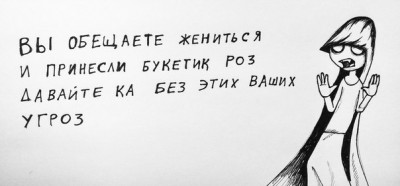 ВЫ ОБЕЩАЕТЕ ЖЕНИТЬСЯ
И ПРИНЕСЛИ БУКЕТИК РОЗ
ДАВАЙТЕ КА БЕЗ ЭТИХ ВАШИХ
УГРОЗ